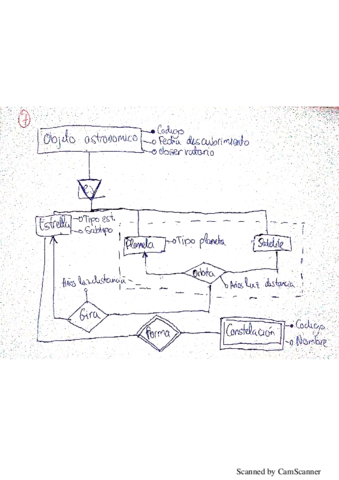 7
Codigo
Objeto astronomico
Fecha descubrimiento
observatorio
Estrella
Tipo est.
Subtipo
Planeta
Tipo planeta
Satelite
Orbita
Años luz distancia
Años luz distancia
Gira
Forma
Constelación
Codigo
Nombre
Scanned by CamScanner